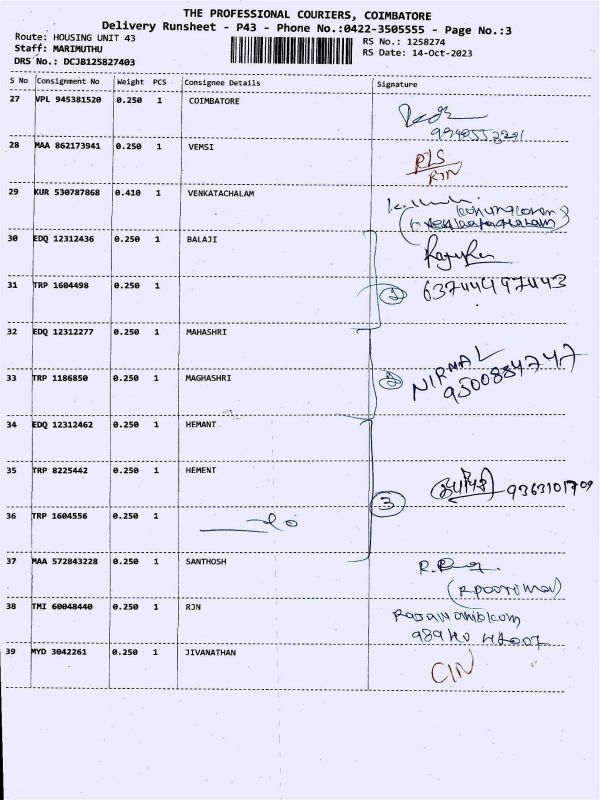 THE PROFESSIONAL COURIERS, COIMBATORE
Delivery Runsheet - P43 - Phone No.:0422-3505555 - Page No.:3
Route: HOUSING UNIT 43
Staff: MARIMUTHU
DRS No.: DCJB125827403
RS No.: 1258274
RS Date: 14-Oct-2023
S No Consignment No Weight PCS Consignee Details Signature
27 VPL 945381520 0.250 1 COIMBATORE
28 MAA 862173941 0.250 1 VEMSI
RTN
29 KUR 530787868 0.410 1 VENKATACHALAM
30 EDQ 12312436 0.250 1 BALAJI
31 TRP 1604498 0.250 1
63744497443
32 EDQ 12312277 0.250 1 MAHASHRI
33 TRP 1186850 0.250 1 MAGHASHRI
NIRMAL
9500884747
34 EDQ 12312462 0.250 1 HEMANT
35 TRP 8225442 0.250 1 HEMENT
9363101709
3
36 TRP 1604556 0.250 1
37 MAA 572843228 0.250 1 SANTHOSH
38 TMI 60048440 0.250 1 RJN
39 MYD 3042261 0.250 1 JIVANATHAN
CIN